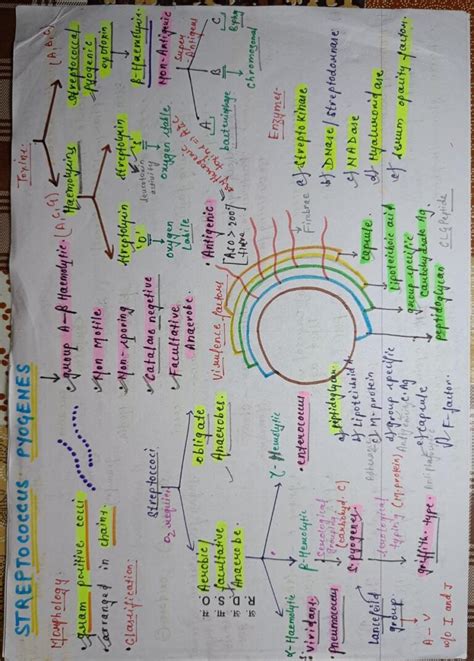 STREPTOCOCCUS PYOGENES
Morphology:
• gram positive cocci
• arranged in chains.
• Classification:
Streptococci
O₂ requirement
Aerobic/
facultative
Anaerobe.
obligate
Anaerobes.
α-Haemolytic
β-Hemolytic
γ-Hemolytic
Viridans
pneumococcus
serological
grouping
(carbohyd. C)
• enterococcus
Lancefield
group.
A-V
w/o I and J
S. pyogenes.
serological
typing (M.protein)
griffith-type.
group A-β Haemolytic.
Non Motile
Non-sporing
Catalase negetive
Facultative
Anaerobe.
Virulence factors
peptidoglycan.
Lipoteichoic A
M-protein
group specific
C.Ag
capsule
F-factor.
Fimbrae
capsule
Lipoteichoic acid
group specific
carbohydrate Ag
peptidoglycan
Toxins
Haemolysins
[A & C]
Streptolysin
'O'
oxygen
Labile
• Antigenic
[ASO > 200]
titre
Streptolysin
'S'
oxygen stable
Streptococcal
pyogenic
exotoxin
[A B C]
β-Haemolysin
Non-Antigenic
Super
Antigens
A
B
C
bacteriophage
Chromosomal
Enzymes
a) Streptokinase
b) DNase/Streptodornase
c) NADase
d) Hyaluronidase
e) serum opacity factor.